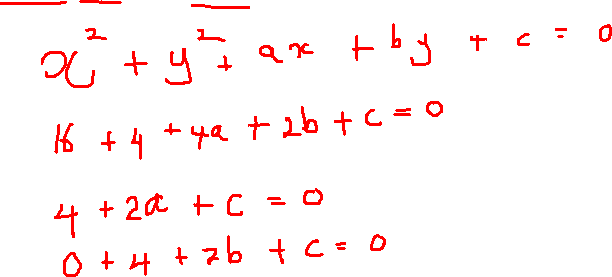 x² + y² + ax + by + c = 0
16 + 4 + 4a + 2b + c = 0
4 + 2a + c = 0
0 + 4 + 2b + c = 0